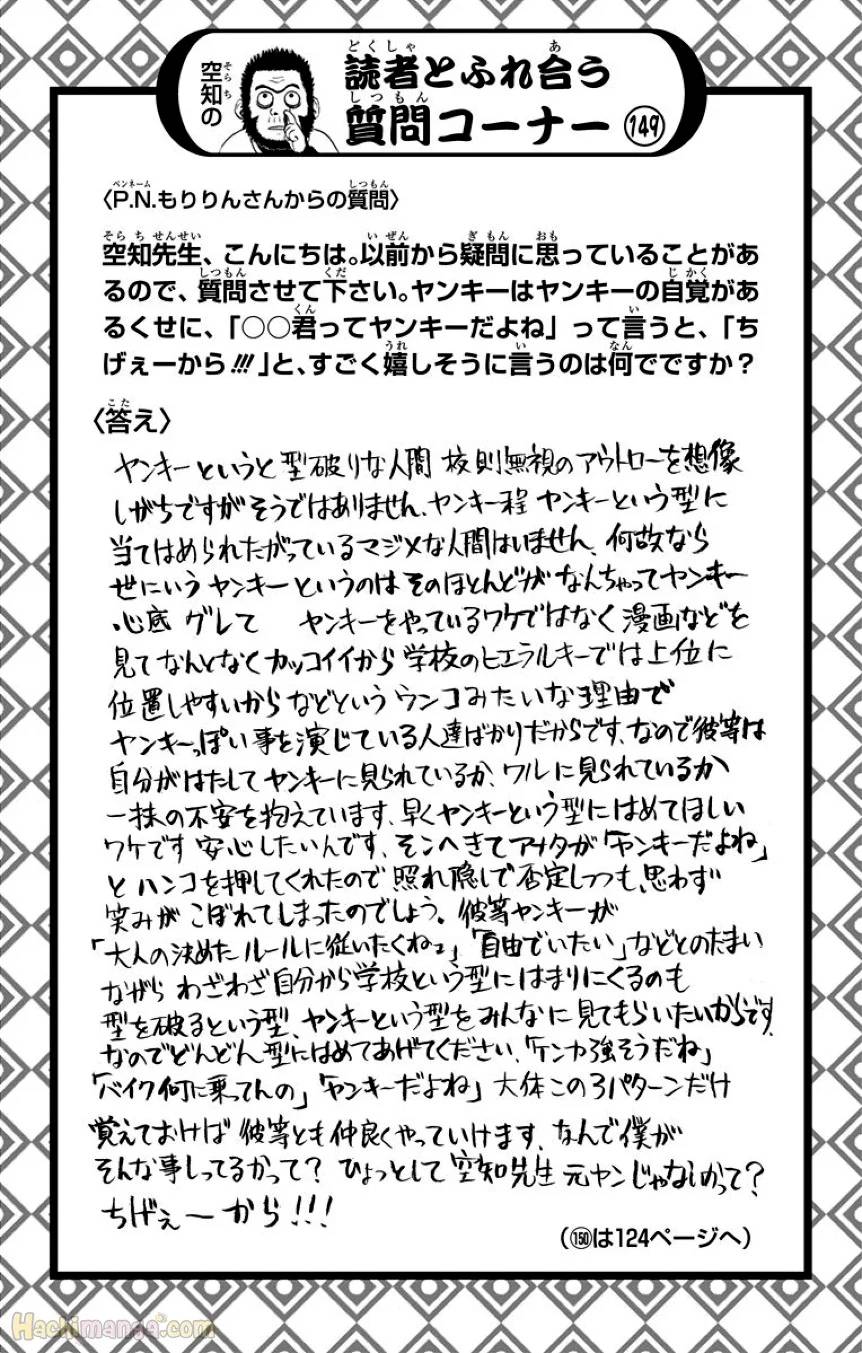 空知の
読者とふれ合う
質問コーナー 149
〈P.N.もりりんさんからの質問〉
空知先生、こんにちは。以前から疑問に思っていることがあ
るので、質問させて下さい。ヤンキーはヤンキーの自覚があ
るくせに、「○○君ってヤンキーだよね」って言うと、「ち
げぇーから!!!」と、すごく嬉しそうに言うのは何でですか?
〈答え〉
ヤンキーというと型破りな人間 校則無視のアウトローを想像
しがちですがそうではありません、ヤンキー程 ヤンキーという型に
当てはめられたがっているマジメな人間はいません、何故なら
世にいうヤンキーというのはそのほとんどがなんちゃってヤンキー
心底 グレて ヤンキーをやっているワケではなく漫画などを
見てなんとなくカッコイイから学校のヒエラルキーでは上位に
位置しやすいからなどというウンコみたいな理由で
ヤンキーっぽい事を演じている人達ばかりだからです、なので彼等は
自分がはたしてヤンキーに見られているか、ワルに見られているか
一抹の不安を抱えています、早くヤンキーという型にはめてほしい
ワケです 安心したいんです、そこへきてアナタが「ヤンキーだよね」
とハンコを押してくれたので照れ隠しで否定しつつも、思わず
笑みがこぼれてしまったのでしょう。彼等ヤンキーが
「大人の決めたルールに従いたくねェ」「自由でいたい」などとのたまい
ながら わざわざ自分から学校という型にはまりにくるのも
型を破るという型、ヤンキーという型をみんなに見てもらいたいからです、
なのでどんどん型にはめてあげてください、「ケンカ強そうだね」
「バイク何に乗ってんの」「ヤンキーだよね」大体この3パターンだけ
覚えておけば彼等とも仲良くやっていけます、なんで僕が
そんな事しってるかって? ひょっとして空知先生元ヤンじゃないかって?
ちげぇーから!!!
(150は124ページへ)
Hachimanga.com